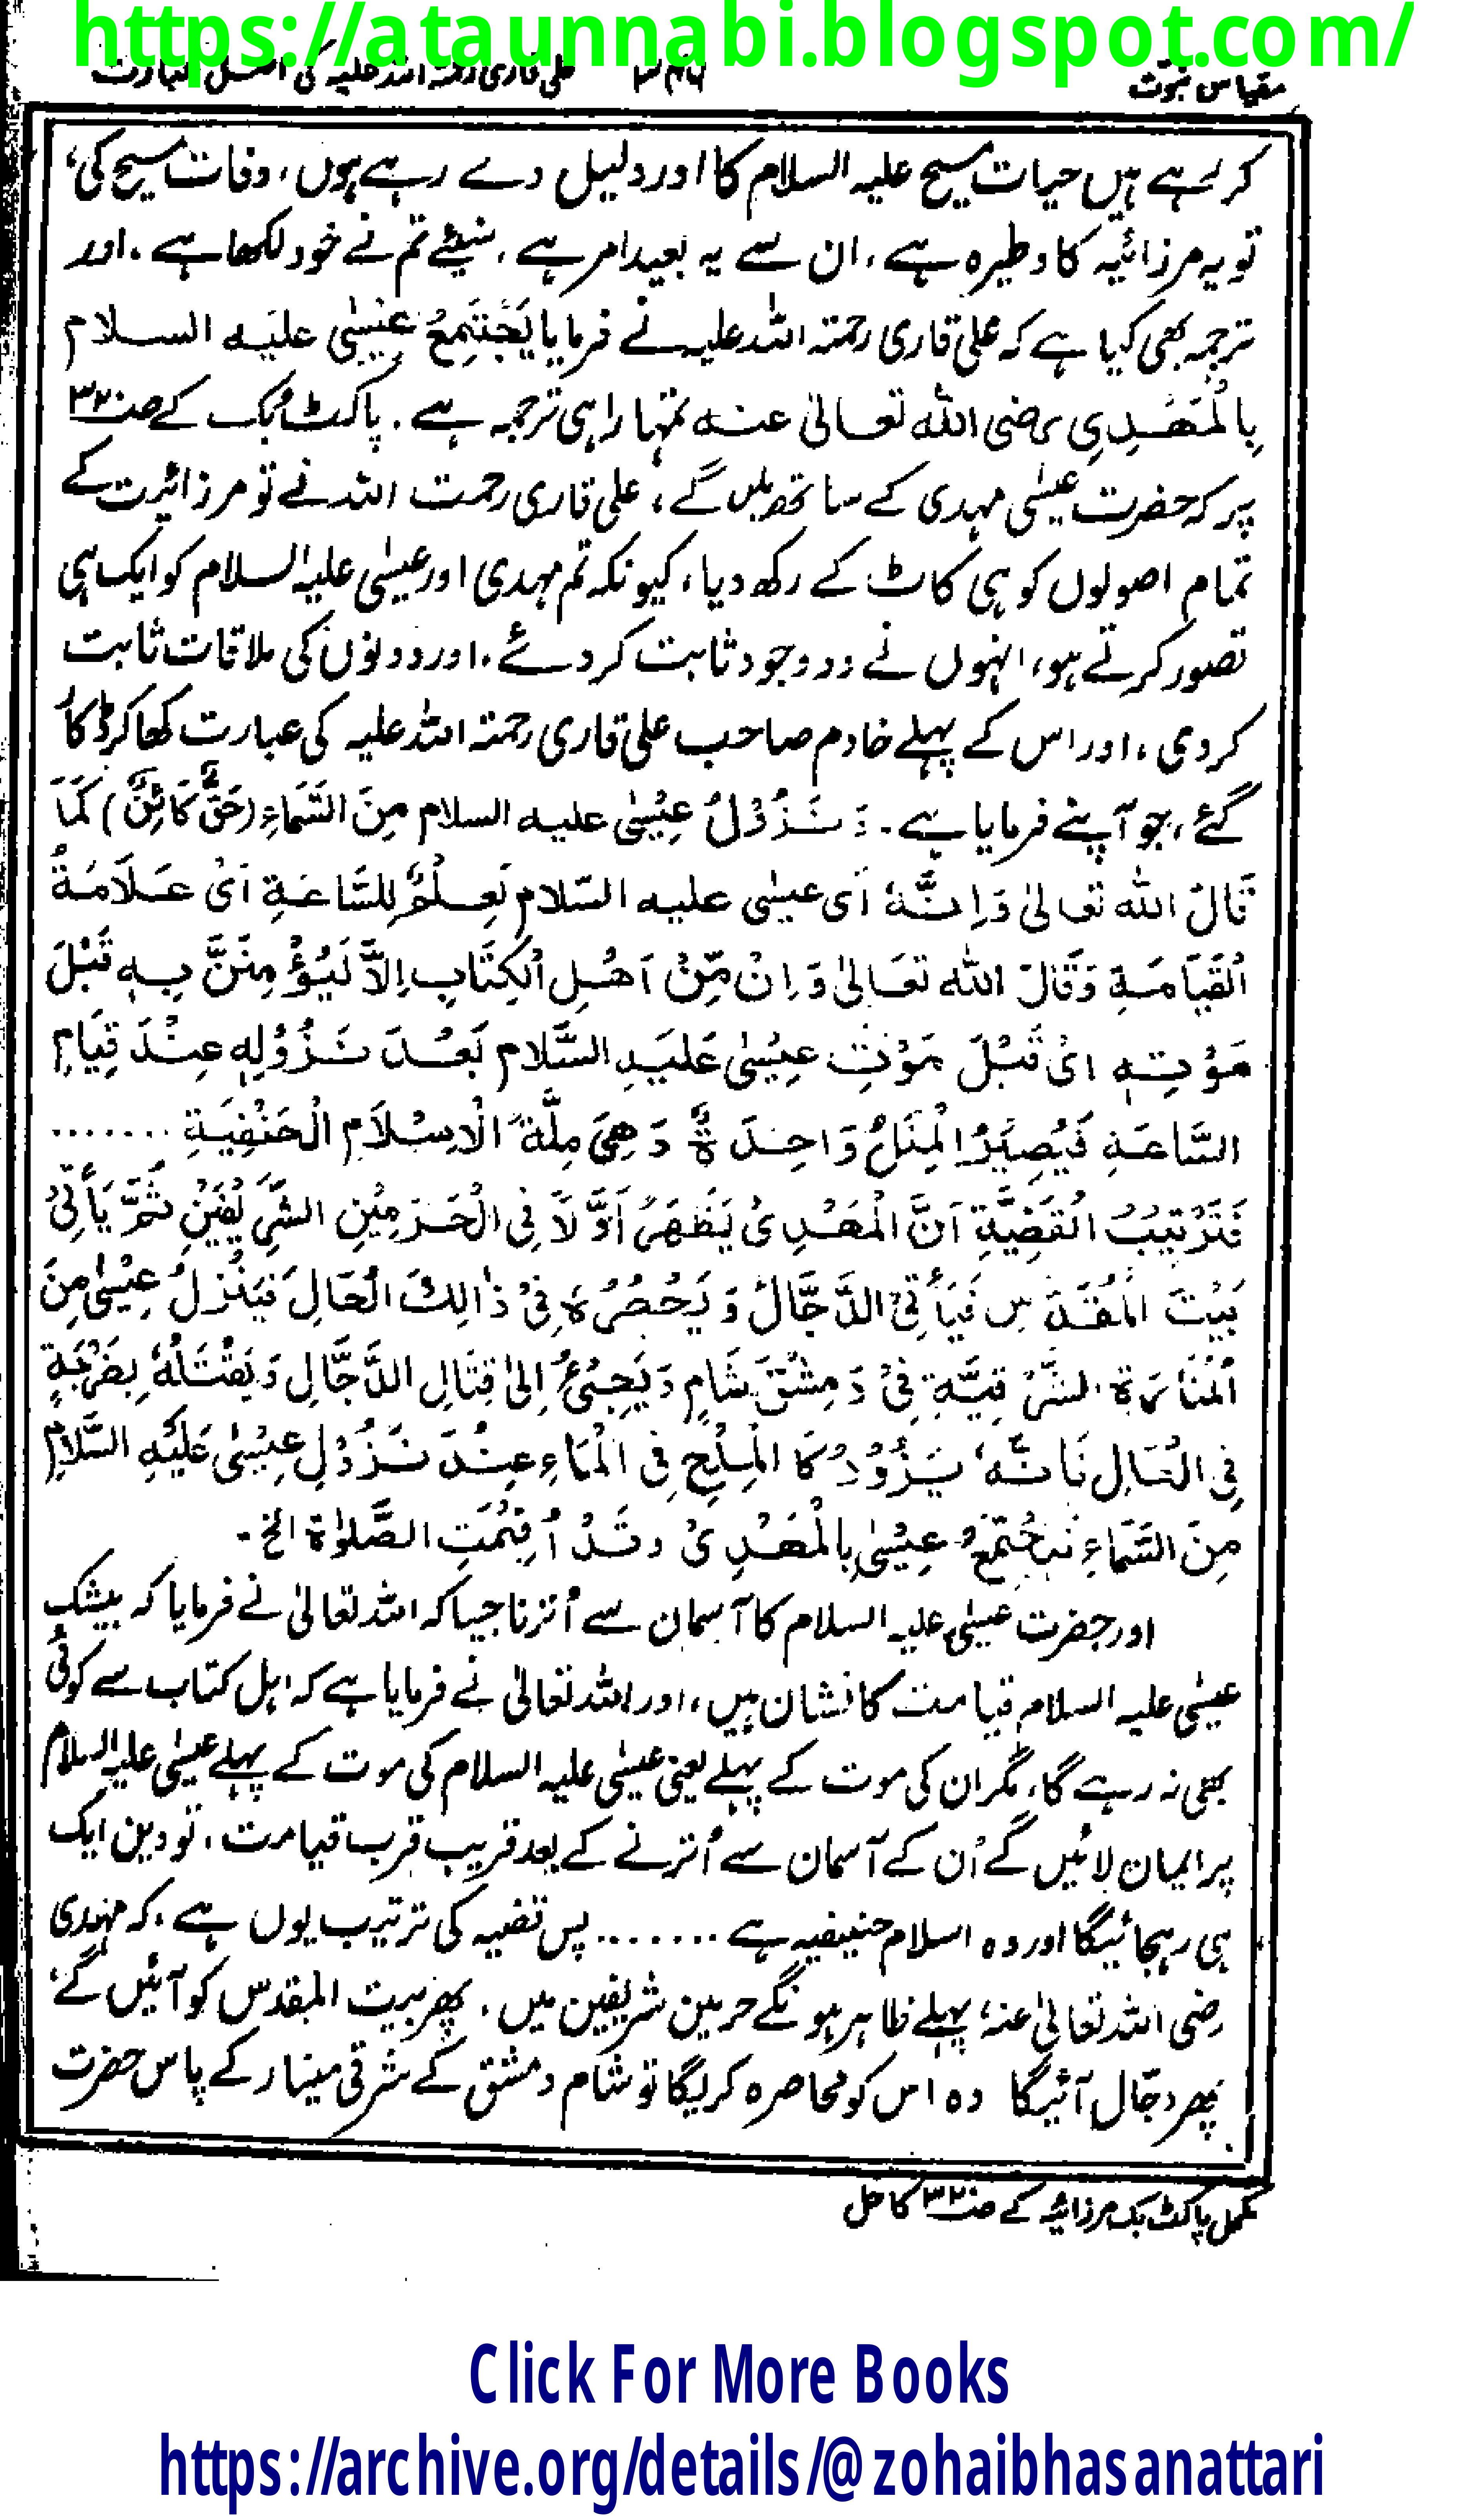 https://ataunnabi.blogspot.com/
مقیاس نبوت ۳۴۶ علی قاری رحمۃ اللہ علیہ کی اصل عبارت
کر رہے ہیں حیات مسیح علیہ السلام کا اور دلیل دے رہے ہوں، وفات مسیح کی،
تو یہ مرزائیہ کا وطیرہ ہے، ان سے یہ بعید امر ہے، سنیئے تم نے خود لکھا ہے، اور
ترجمہ بھی کیا ہے کہ علی قاری رحمۃ اللہ علیہ نے فرمایا یَجْتَمِعُ عِیْسٰی علیہ السلام
بِالْمَهْدِی رضی اللہ تعالیٰ عنہ تمہارا ہی ترجمہ ہے۔ پاکٹ بک کے صـ۳۲۰
پر کہ حضرت عیسٰی مہدی کے ساتھ ملیں گے، علی قاری رحمت اللہ نے تو مرزائیت کے
تمام اصولوں کو ہی کاٹ کے رکھ دیا، کیونکہ تم مہدی اور عیسٰی علیہ السلام کو ایک ہی
تصور کرتے ہو، انہوں نے دو وجود ثابت کر دئے۔ اور دونوں کی ملاقات ثابت
کر دی، اور اس کے پہلے خادم صاحب علی قاری رحمۃ اللہ علیہ کی عبارت کھا کر ڈکار
گئے، جو آپنے فرمایا ہے۔ وَ نُزُوْلُ عِیْسٰی علیہ السلام مِنَ السَّمَاءِ (حَقٌّ کَائِنٌ) کَمَا
قَالَ اللہ تعالیٰ وَاِنَّهٗ اَی عیسٰی علیہ السّلام لَعِلْمٌ لِلسَّاعَةِ اَیْ عَلَامَةُ
الْقِیَامَةِ وَقَالَ اللہ تعَالیٰ وَاِنْ مِّنْ اَهْلِ الْکِتَابِ اِلَّا لَیُؤْمِنَنَّ بِهٖ قَبْلَ
مَوْتِهٖ اَیْ قَبْلَ مَوْتِ عِیْسٰی عَلَیهِ السَّلام بَعْدَ نُزُوْلِهٖ عِنْدَ قِیَامِ
السَّاعَةِ فَیَصِیْرُ الْمِلَلُ وَاحِدَةً وَهِیَ مِلَّةُ الْاِسْلَامِ الْحَنْفِیَةِ .......
فَتَرْتِیْبُ الْقَضِیَّةِ اَنَّ الْمَهْدِیْ یَظْهَرُ اَوَّلًا فِی الْحَرَمَیْنِ الشَّرِیْفَیْنِ ثُمَّ یَأْتِیْ
بَیْتَ الْمُقَدَّسِ فَیَأْتِیْ الدَّجَّالُ وَ یَحْصُرُهٗ فِیْ ذٰالِكَ الْحَالِ فَیَنْزِلُ عِیْسٰی مِنَ
الْمَنَارَةِ الشَّرْقِیَّةِ فِیْ دَمِشْقَ شَامٍ وَیَجِیْئُ اِلیٰ قِتَالِ الدَّجَّالِ وَیَقْتُلُهٗ بِضَرْبَةٍ
فِی الْحَالِ فَاِنَّهٗ یَزُوْدُ کَا الْمِلْحِ فِی الْمَاءِ عِنْدَ نُزُوْلِ عِیْسٰی عَلَیْهِ السَّلَامِ
مِنَ السَّمَاءِ فَیَجْتَمِعُ عِیْسٰی بِالْمَهْدِیْ وَقَدْ اُقِیْمَتِ الصَّلوٰة الخ۔
اور حضرت عیسٰی علیہ السلام کا آسمان سے اُترنا جیسا کہ اللہ تعالیٰ نے فرمایا کہ بیشک
عیسٰی علیہ السلام قیامت کا نشان ہیں، اور اللہ تعالیٰ نے فرمایا ہے کہ اہل کتاب سے کوئی
بھی نہ رہے گا، مگر ان کی موت کے پہلے یعنی عیسٰی علیہ السلام کی موت کے پہلے عیسٰی علیہ السلام
پر ایمان لائیں گے اُن کے آسمان سے اُترنے کے بعد قریب قرب قیامت، تو دین ایک
ہی رہجائیگا اور وہ اسلام حنیفیہ ہے ....... پس قضیہ کی ترتیب یوں ہے، کہ مہدی
رضی اللہ تعالیٰ عنہ، پہلے ظاہر ہونگے حرمین شریفین میں۔ پھر بیت المقدس کو آئیں گے،
پھر دجّال آئیگا وہ اس کو محاصرہ کریگا تو شام دمشق کے شرقی مینار کے پاس حضرت
مکمل پاکٹ بک مرزائیہ کے صـ۳۲۰ کا حل
Click For More Books
https://archive.org/details/@zohaibhasanattari